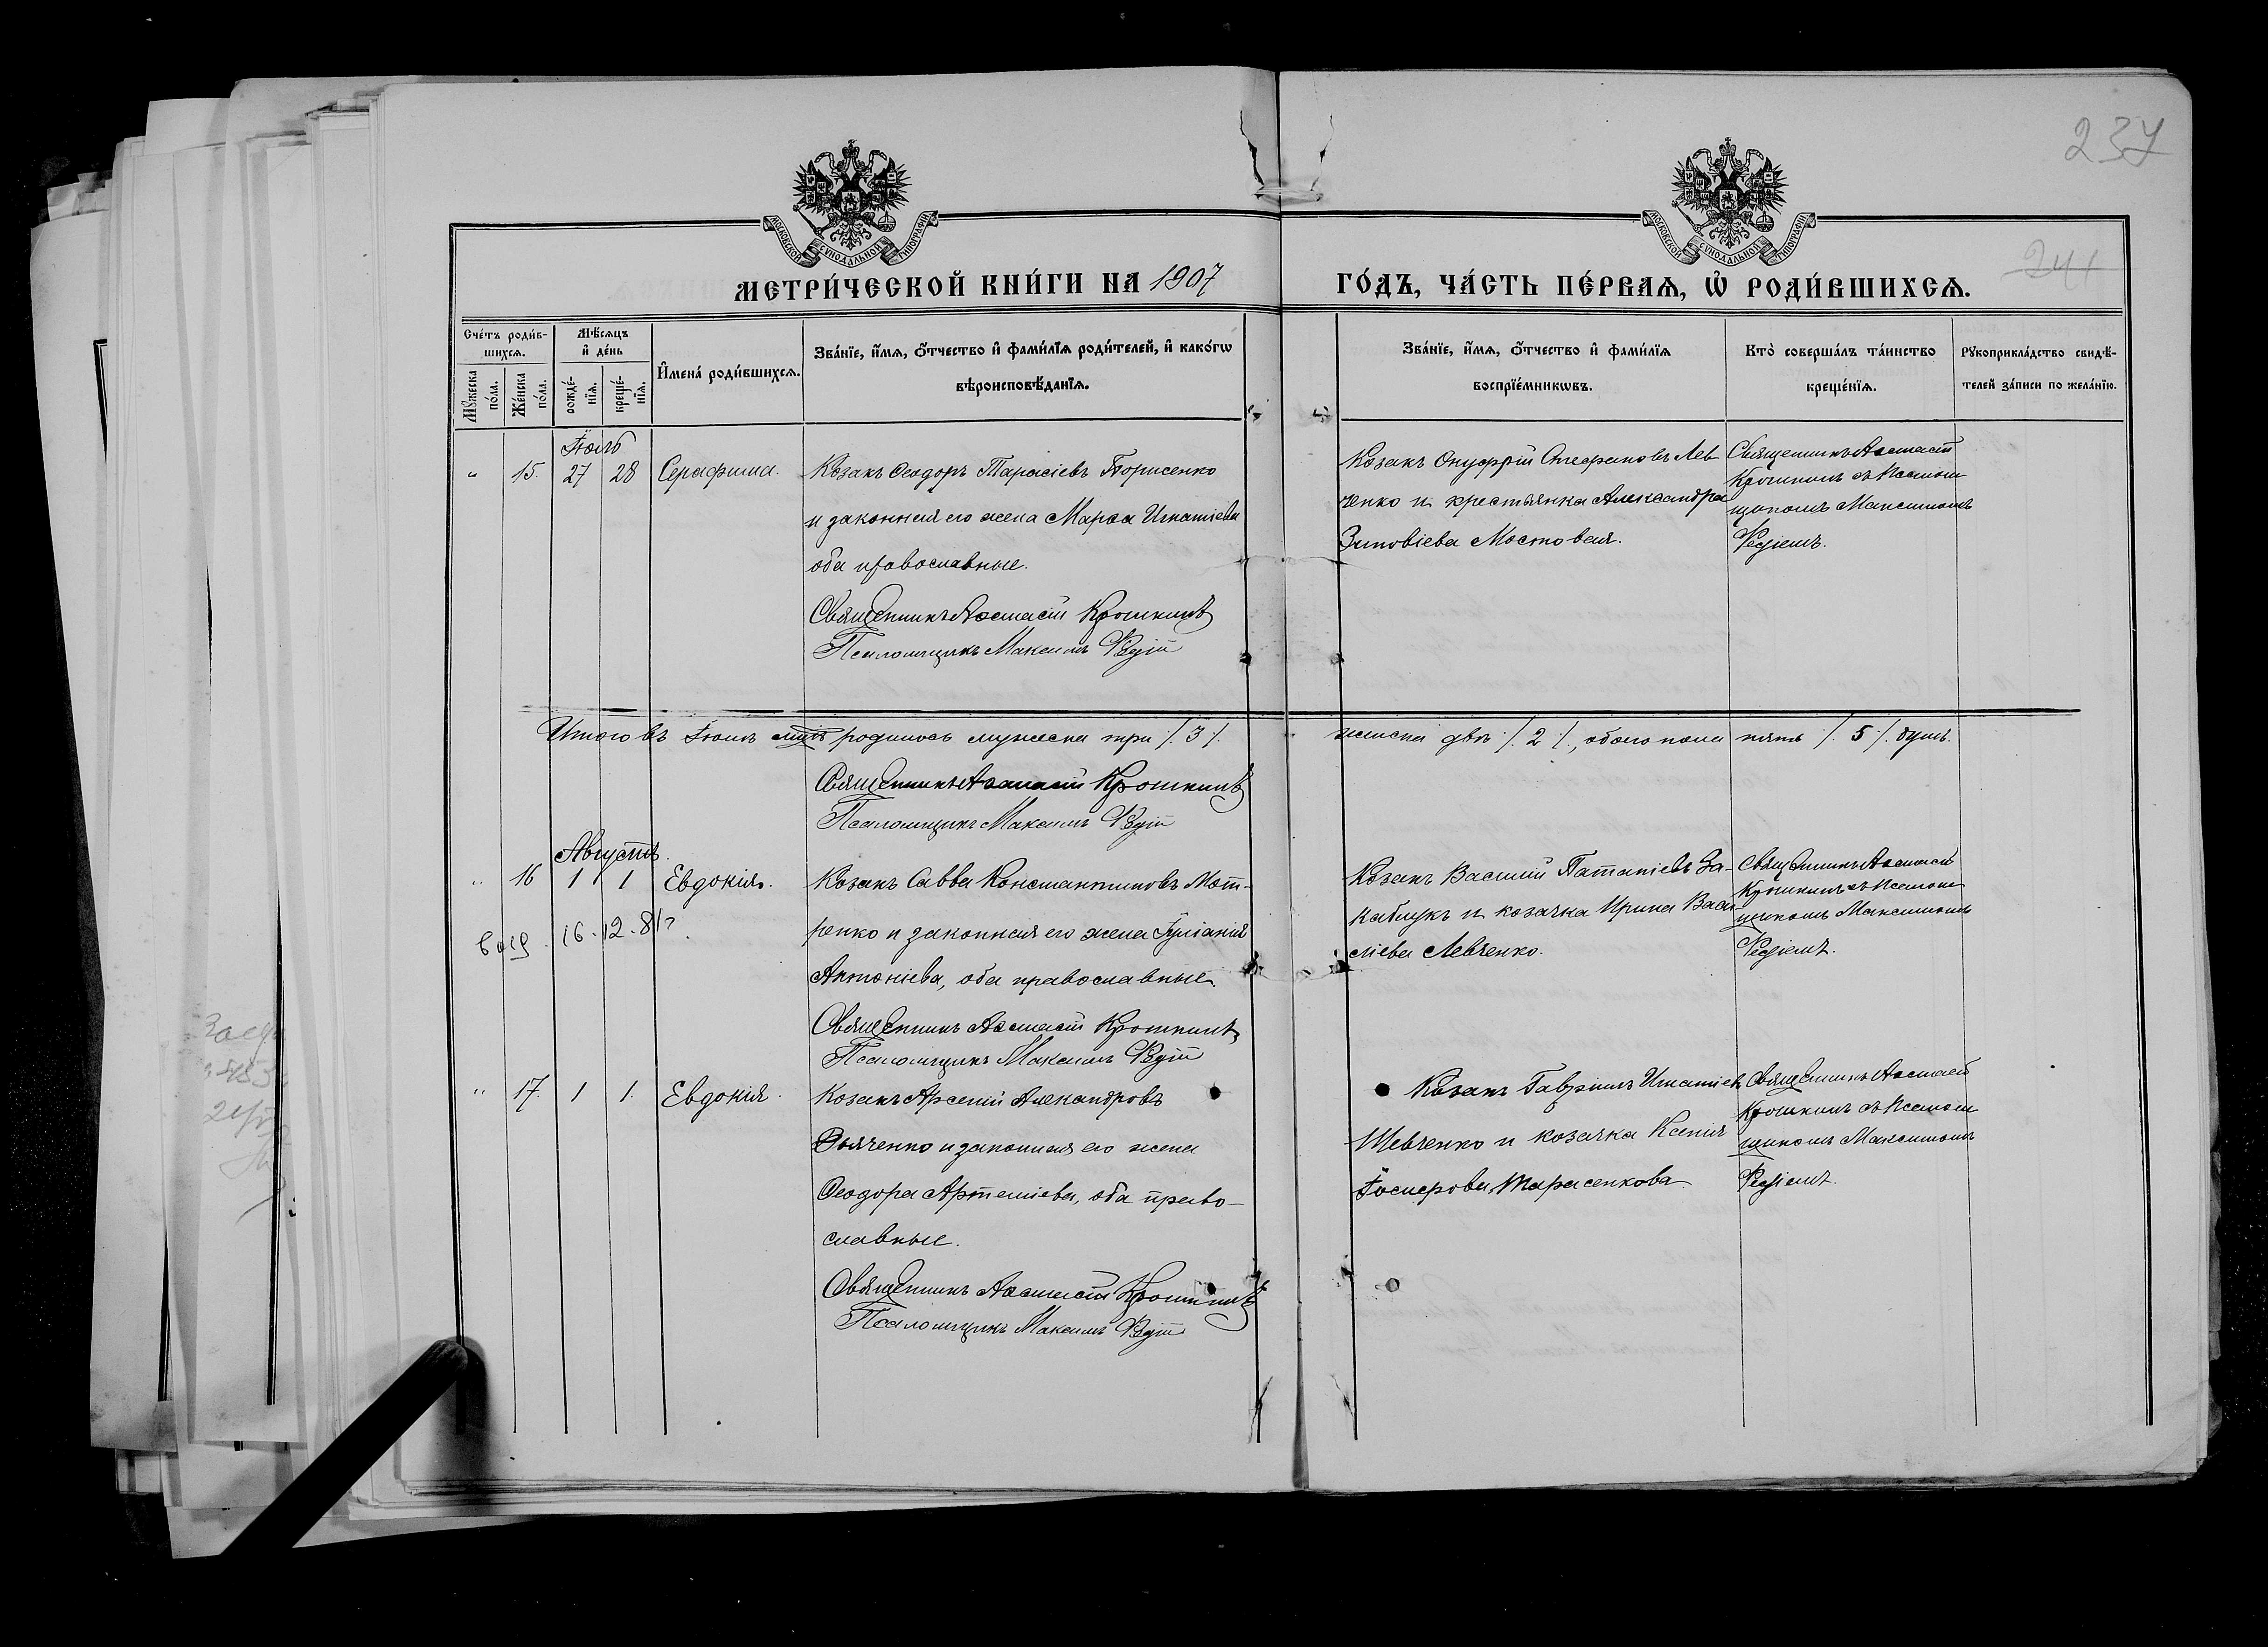 237
241
МОСКОВСКОЙ СѴНОДАЛЬНОЙ ТИПОГРАФІИ
МОСКОВСКОЙ СѴНОДАЛЬНОЙ ТИПОГРАФІИ
МЕТРИ́ЧЕСКОЙ КНИ́ГИ НА 1907 ГО́ДЪ, ЧА́СТЬ ПЕ́РВАѦ, Ѡ҆ РОДИ́ВШИХСѦ.
Сче́тъ роди́в-
шихсѧ.
Мꙋ́жеска по́ла.
Же́нска по́ла.
Мѣ́сѧцъ
и҆ де́нь
рожде́-нїѧ.
креще́-нїѧ.
И҆мена̀ роди́вшихсѧ.
Зва́нїе, и҆́мѧ, ѻ҆́тчество и҆ фами́лїѧ роди́телей, и҆ како́гѡ
вѣроисповѣ́данїѧ.
Зва́нїе, и҆́мѧ, ѻ҆́тчество и҆ фами́лїѧ
воспрїе́мникѡвъ.
Кто̀ соверша́лъ та́инство
креще́нїѧ.
Рꙋкоприкла́дство свидѣ́-
телей за́писи по жела́нїю.
Іюль
" 15. 27 28 Серафима.
Козакъ Ѳеодоръ Тарасіевъ Борисенко
и законная его жена Марѳа Игнатіева
оба православные.
Священникъ Аѳанасій Крошкинъ
Псаломщикъ Максимъ
Козакъ Онуфрій Стефановъ Лев
ченко и крестьянка Александра
Зиновіева Мостовая.
Священникъ Аѳанасій
Крошкинъ съ псалом
щикомъ Максимомъ
Итого въ Іюлѣ мцѣ родилось мужеска три /. 3 /. женска двѣ /. 2 /., обоего пола пять /. 5 /. душъ.
Священникъ Аѳанасій Крошкинъ
Псаломщикъ Максимъ
Августъ.
" 16 1 1 Евдокія.
16. 12. 81
Козакъ Савва Константиновъ Мот-
ренко и законная его жена Іуліанія
Антоніева, оба православные.
Священникъ Аѳанасій Крошкинъ
Псаломщикъ Максимъ
Козакъ Василій За-
каблукъ и козачка Ирина Васи
ліева Левченко.
Священникъ Аѳанасій
Крошкинъ съ псалом
щикомъ Максимомъ
" 17. 1 1. Евдокія.
Козакъ Арсеній Александровъ
Дьяченко и законная его жена
Ѳеодора Артеміева, оба право-
славные.
Священникъ Аѳанасій Крошкинъ
Псаломщикъ Максимъ
Козакъ Гавріилъ Игнатіев
Шевченко и козачка Ксенія
Тарасенкова.
Священникъ Аѳанасій
Крошкинъ съ псалом
щикомъ Максимомъ